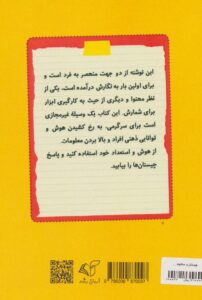 این نوشته از دو جهت منحصر به فرد است و
برای اولین بار به نگارش درآمده است. یکی از
نظر محتوا و دیگری از حیث به کارگیری ابزار
برای شمارش. این کتاب یک وسیله غیرمجازی
است برای سرگرمی، به رخ کشیدن هوش و
توانایی ذهنی افراد و بالا بردن معلومات
از هوش و استعداد خود استفاده کنید و پاسخ
چیستان‌ها را بیابید.